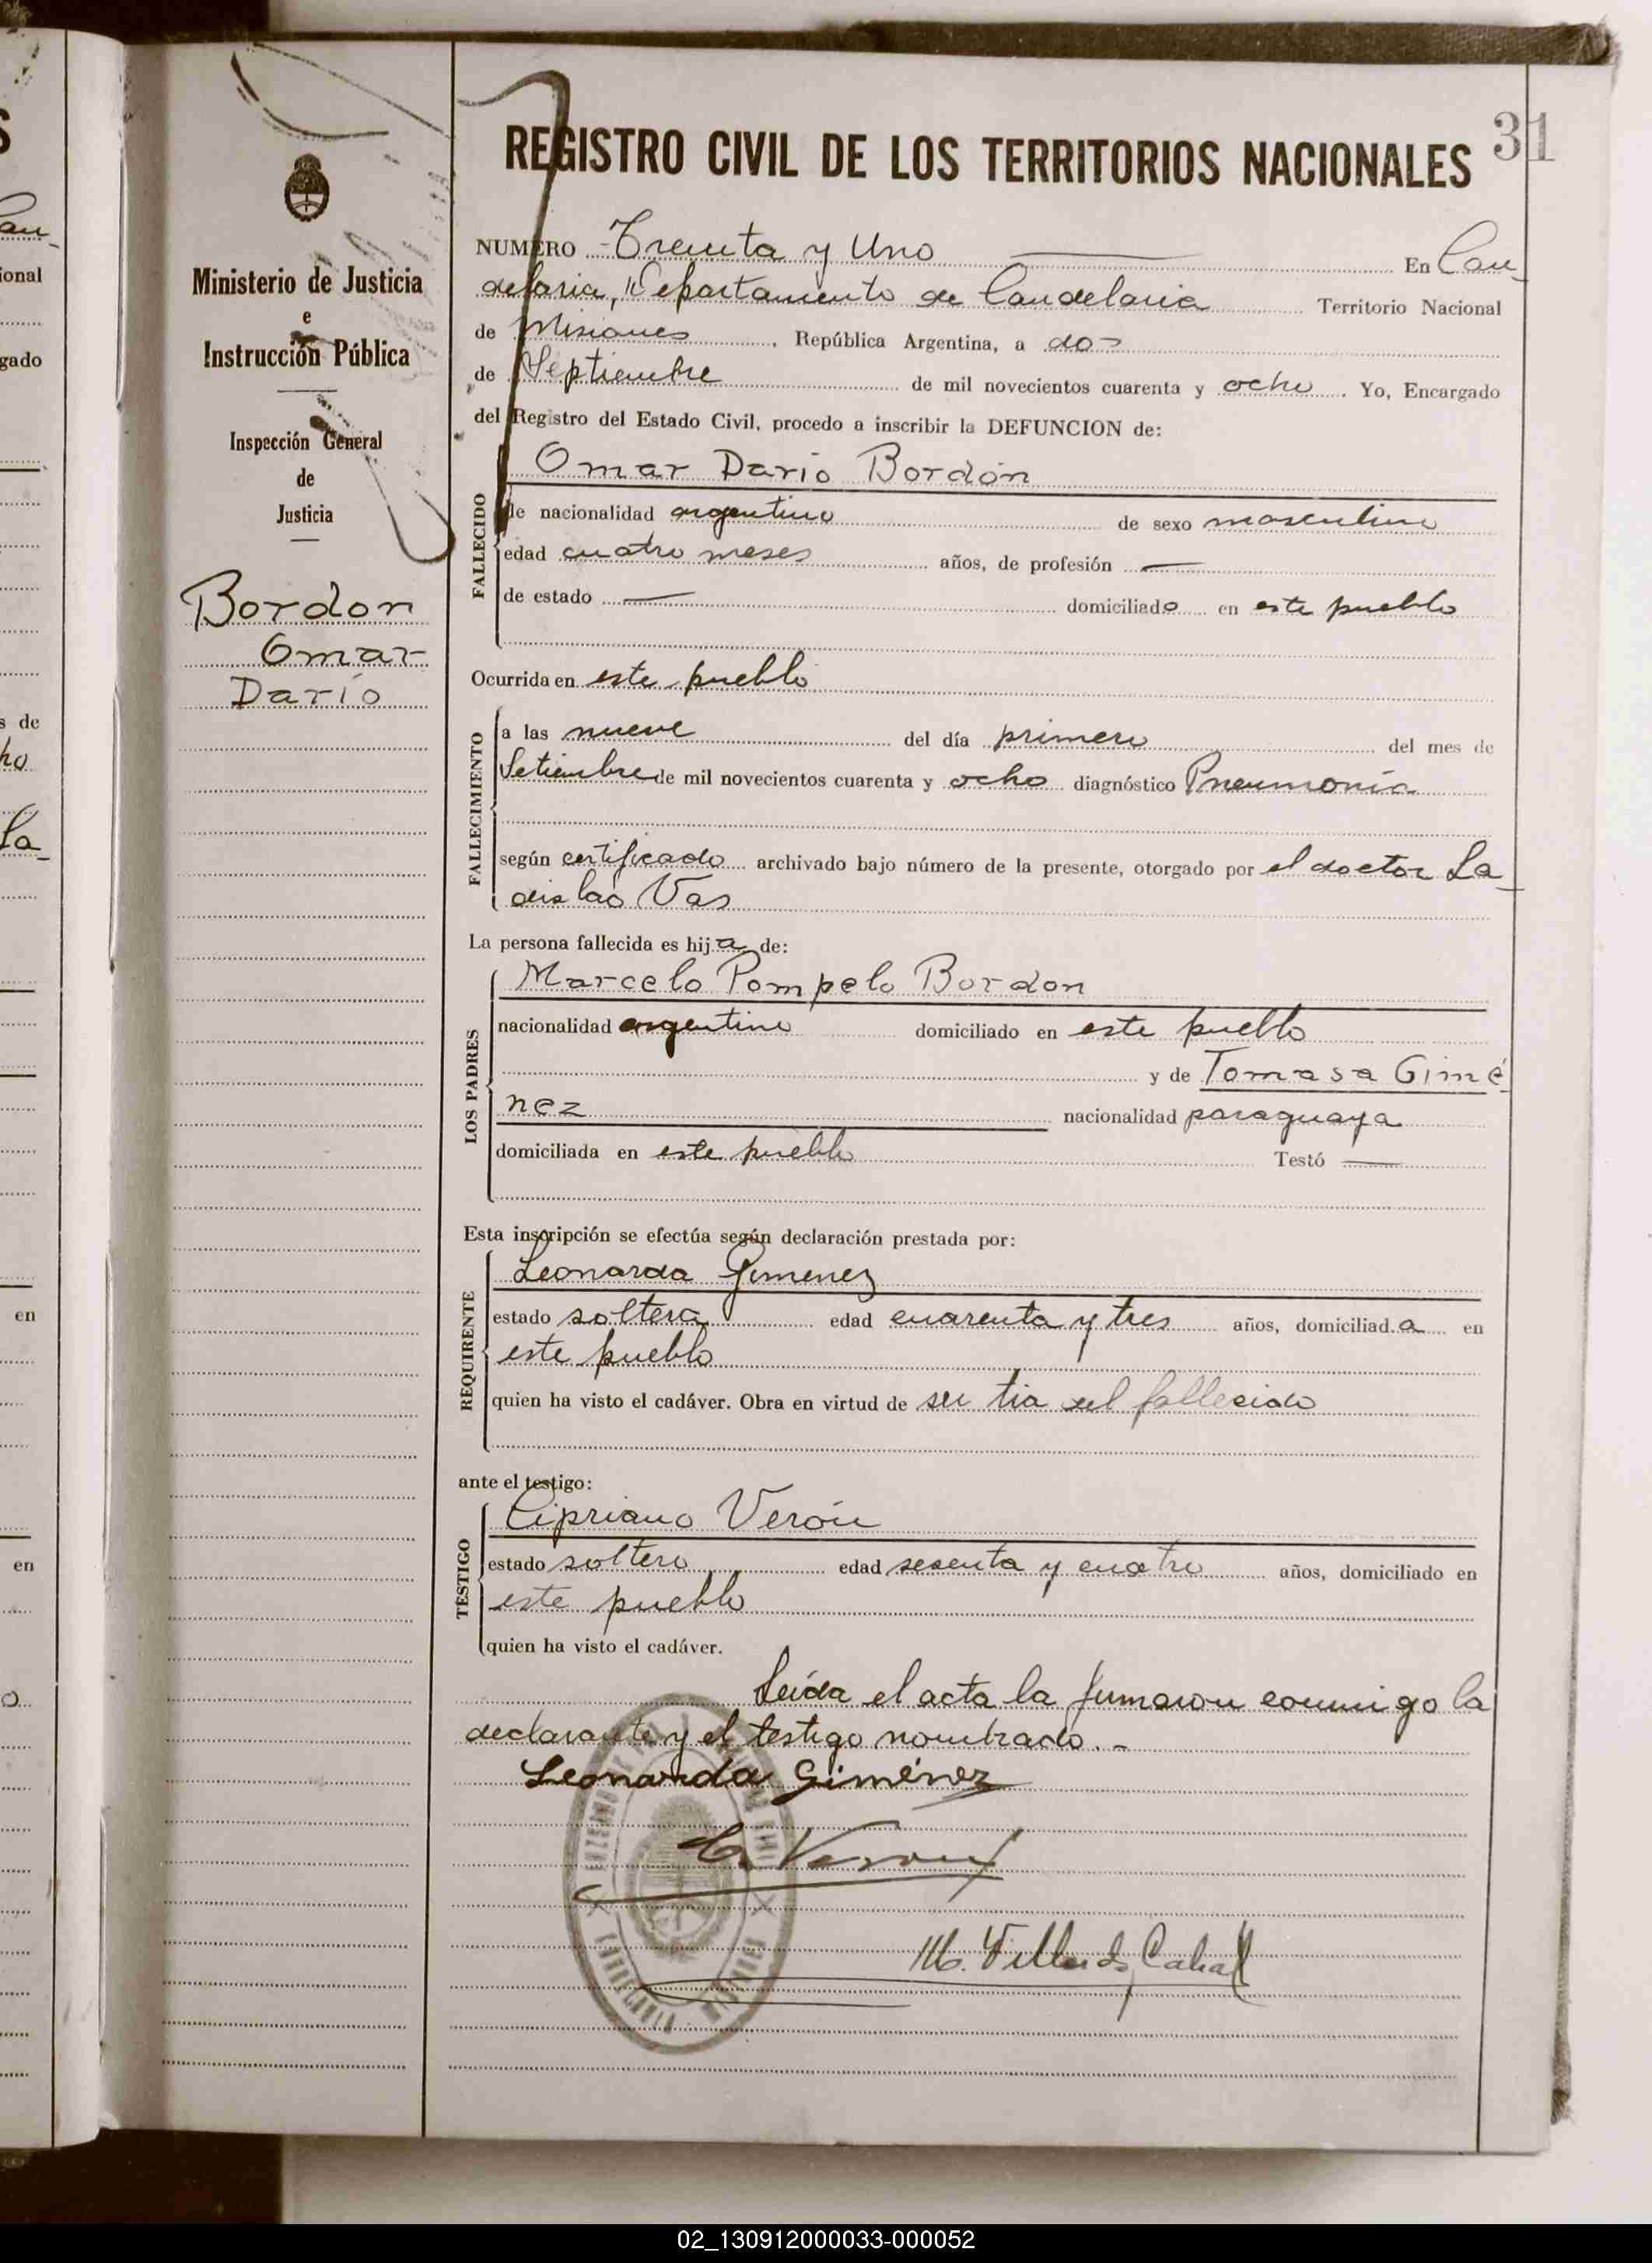 31
REGISTRO CIVIL DE LOS TERRITORIOS NACIONALES
Ministerio de Justicia
e
Instrucción Pública
Inspección General
de
Justicia
Bordon
Omar
Darío
NUMERO Treinta y Uno En Can-
delaria, Departamento de Candelaria Territorio Nacional
de Misiones, República Argentina, a dos
de Septiembre de mil novecientos cuarenta y ocho. Yo, Encargado
del Registro del Estado Civil, procedo a inscribir la DEFUNCION de:
FALLECIDO
Omar Darío Bordón
de nacionalidad argentino de sexo masculino
edad cuatro meses años, de profesión —
de estado — domiciliado en este pueblo
Ocurrida en este pueblo
FALLECIMIENTO
a las nueve del día primero del mes de
Setiembre de mil novecientos cuarenta y ocho diagnóstico Pneumonía
según certificado archivado bajo número de la presente, otorgado por el doctor La-
dislao Vas
La persona fallecida es hija de:
LOS PADRES
Marcelo Pompelo Bordon
nacionalidad argentino domiciliado en este pueblo
y de Tomasa Gimé
nez nacionalidad paraguaya
domiciliada en este pueblo Testó —
Esta inscripción se efectúa según declaración prestada por:
REQUIRENTE
Leonarda Gimenez
estado soltera edad cuarenta y tres años, domiciliada en
este pueblo
quien ha visto el cadáver. Obra en virtud de ser tia del fallecido
ante el testigo:
TESTIGO
Cipriano Verón
estado soltero edad sesenta y cuatro años, domiciliado en
este pueblo
quien ha visto el cadáver.
Leída el acta la firmaron conmigo la
declarante y el testigo nombrado.-
Leonarda Giménez
C. Veron
M. Cabal
CANDELARIA
02_130912000033-000052